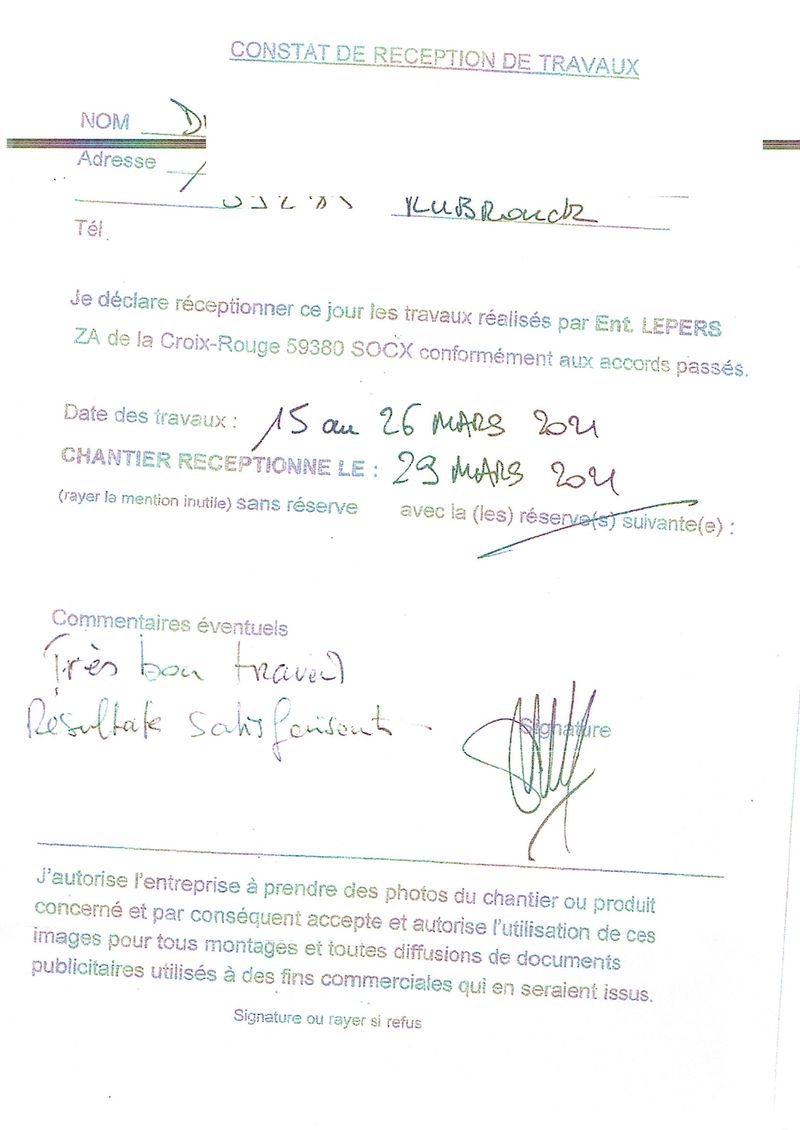 CONSTAT DE RECEPTION DE TRAVAUX
NOM
Adresse
KUBROUCK
Tél.
Je déclare réceptionner ce jour les travaux réalisés par Ent. LEPERS
ZA de la Croix-Rouge 59380 SOCX conformément aux accords passés.
Date des travaux : 15 au 26 MARS 2021
CHANTIER RECEPTIONNE LE : 29 MARS 2021
(rayer la mention inutile) sans réserve avec la (les) réserve(s) suivante(e) :
Commentaires éventuels
Très bon travail
Résultats satisfaisants
Signature
J'autorise l'entreprise à prendre des photos du chantier ou produit
concerné et par conséquent accepte et autorise l'utilisation de ces
images pour tous montages et toutes diffusions de documents
publicitaires utilisés à des fins commerciales qui en seraient issus.
Signature ou rayer si refus